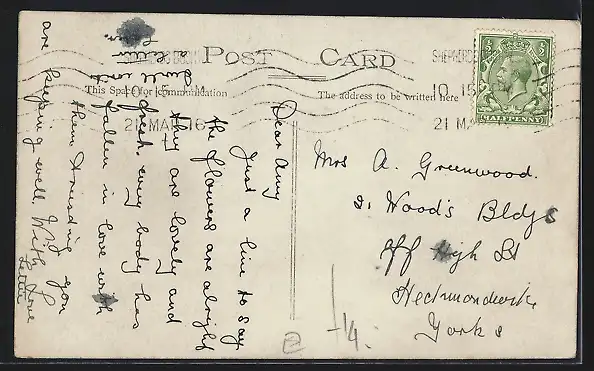 POST CARD
This Space for communication
The address to be written here
SHEPHERDS
10 15
21 MAR 16
HALFPENNY
Dear Amy
Just a line to say
the flowers are alright
they are lovely and
fresh every body has
fallen in love with
them
are keeping well. With Love
Lettie
will write
a letter
later
Mrs A. Greenwood.
2, Wood's Bldgs
off High St
Heckmondwike
Yorks
21 MAR 16